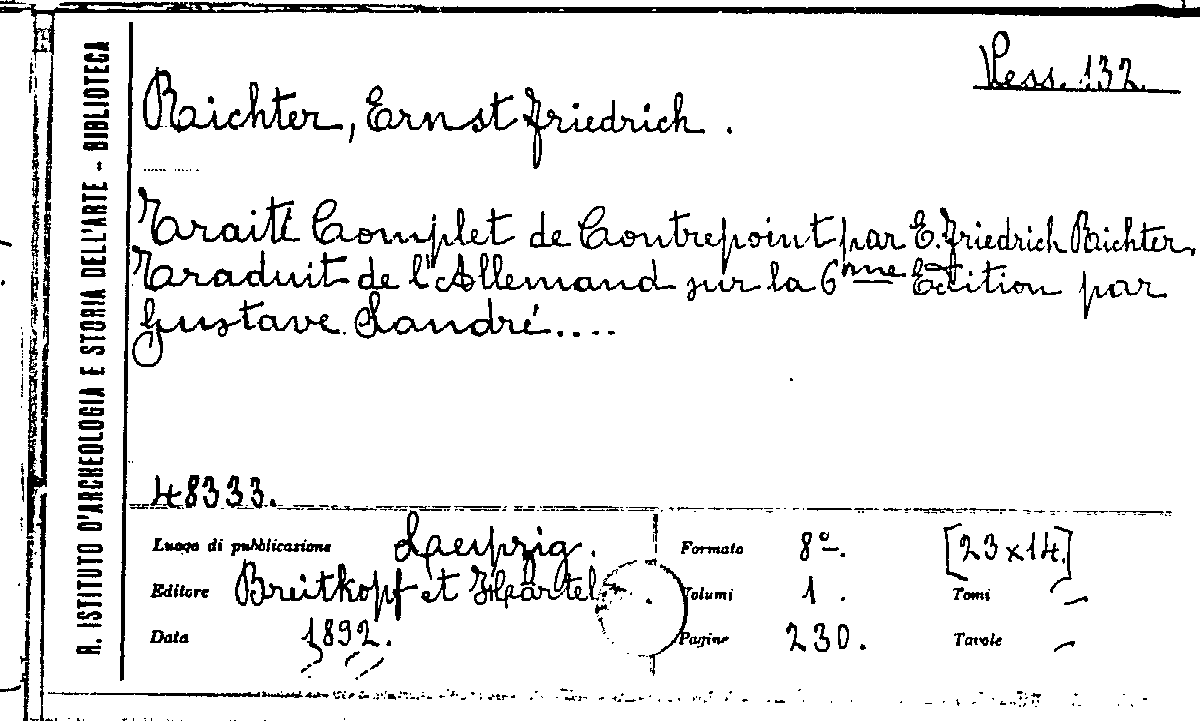 R. ISTITUTO D'ARCHEOLOGIA E STORIA DELL'ARTE - BIBLIOTECA
Vess. 132.
Richter, Ernst Friedrich.
Traité Complet de Contrepoint par E. Friedrich Richter,
Traduit de l'Allemand sur la 6me Edition par
Gustave Sandré....
48333.
Luogo di pubblicazione Leipzig. Formato 8º. [23x14.]
Editore Breitkopf et Haertel. Volumi 1. Tomi —
Data 1892. Pagine 230. Tavole —